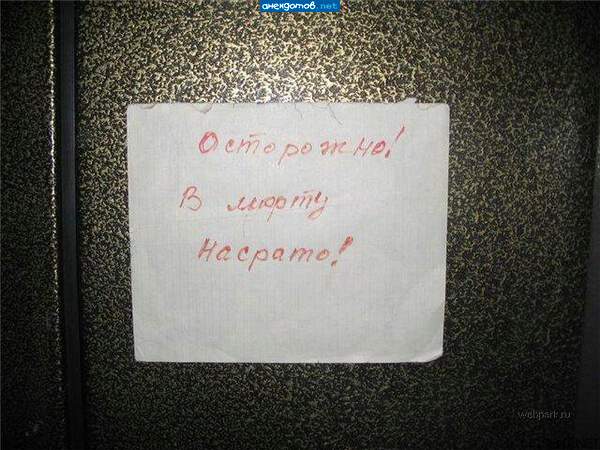 анекдотов.net
Осторожно!
В лифту
Насрато!
webpark.ru